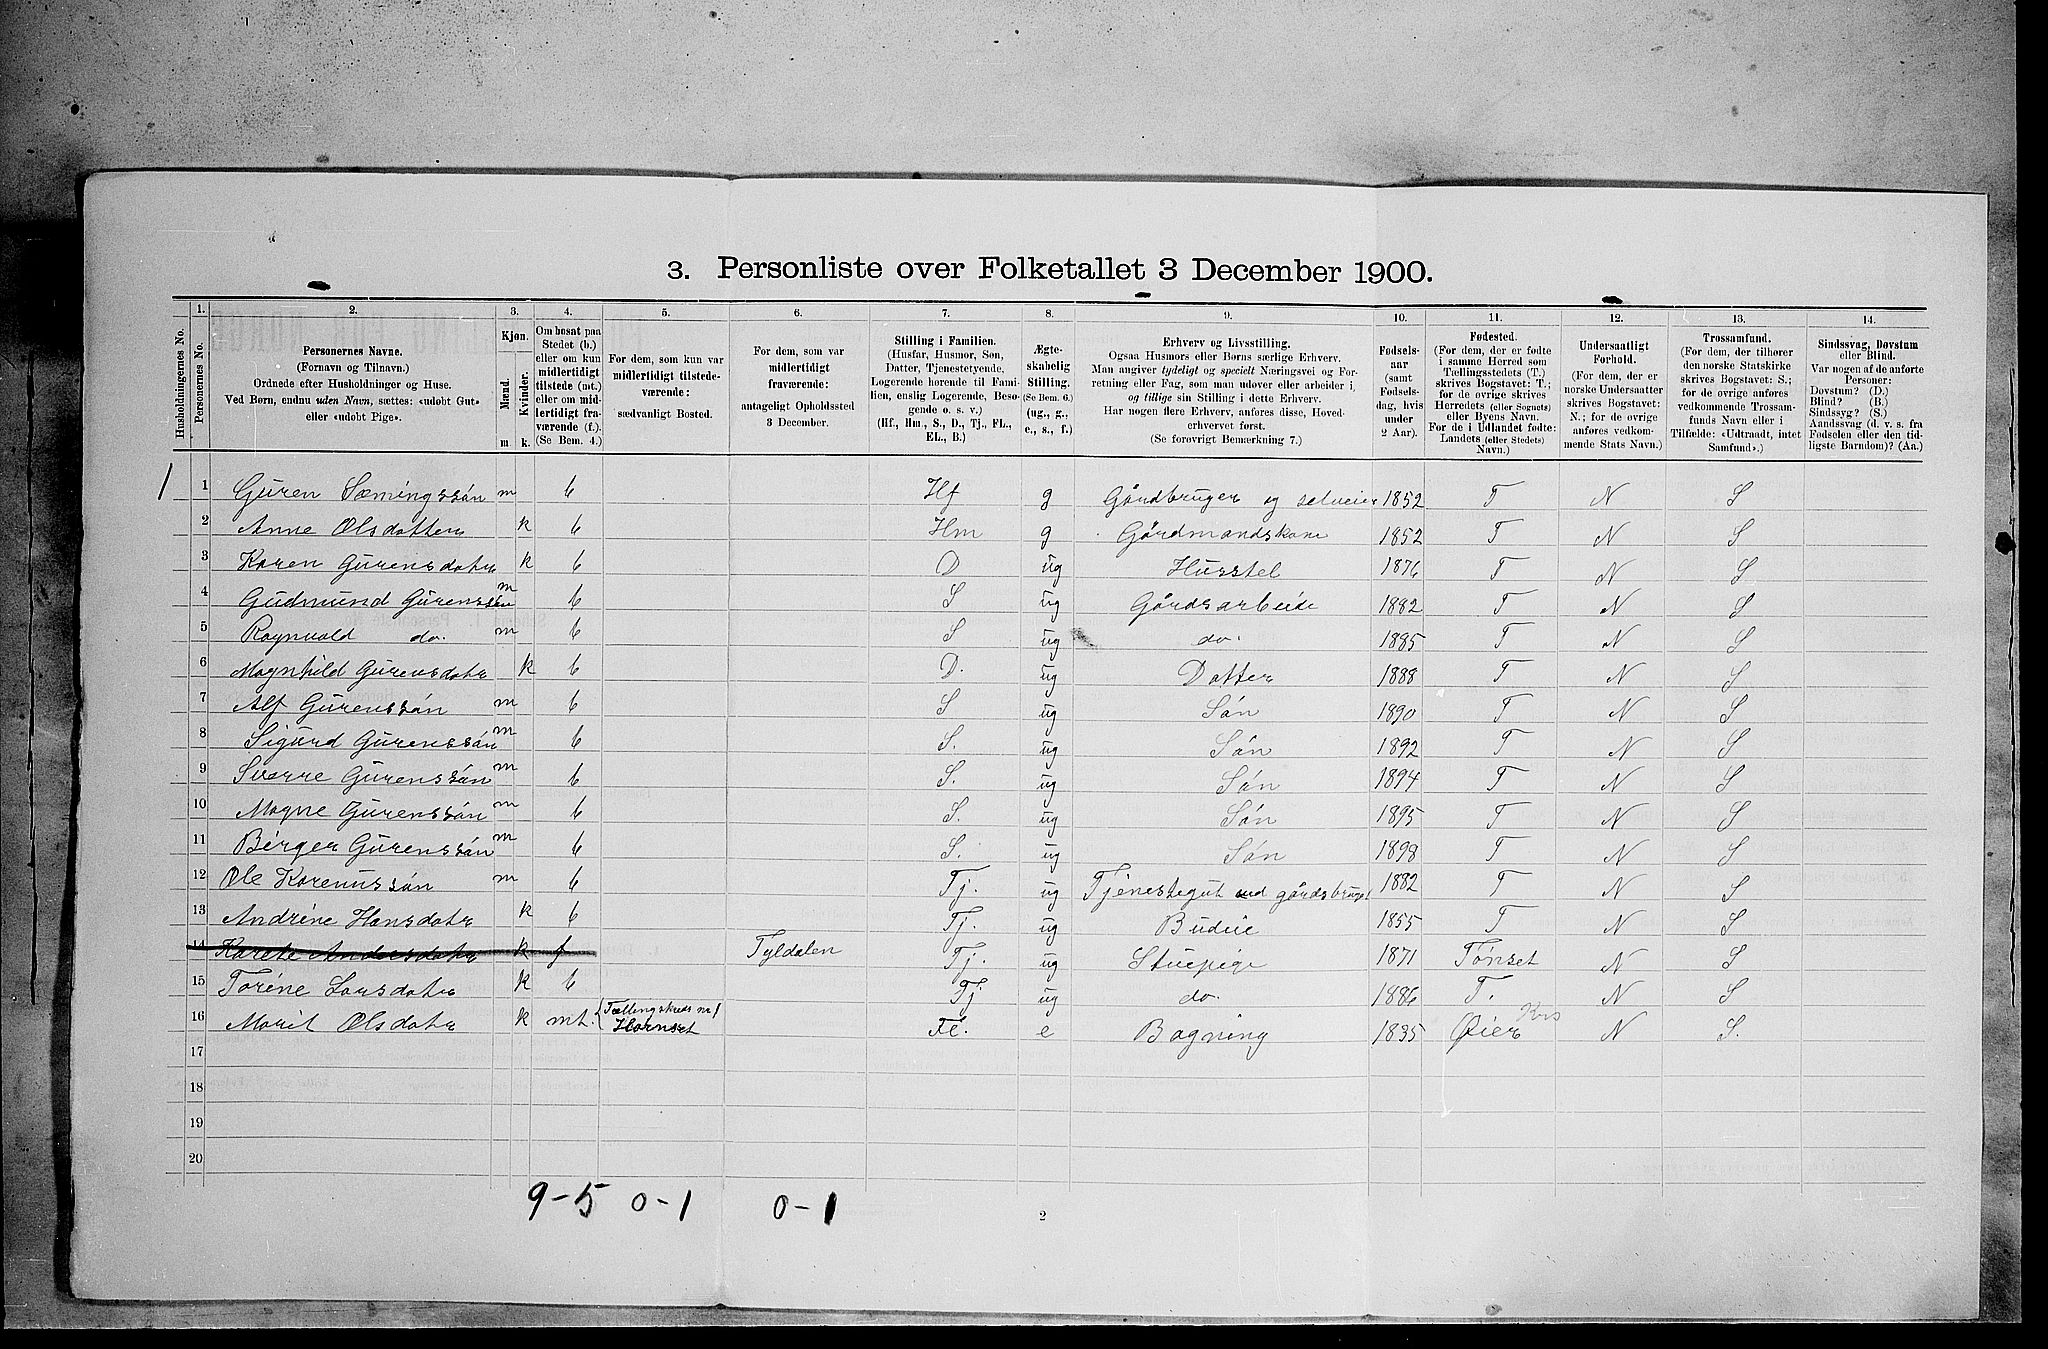 3. Personliste over Folketallet 3 December 1900.
1. 2. 3. 4. 5. 6. 7. 8. 9. 10. 11. 12. 13. 14.
Husholdningernes No.
Personernes No.
Personernes Navne.
(Fornavn og Tilnavn.)
Ordnede efter Husholdninger og Huse.
Ved Børn, endnu uden Navn, sættes: «udøbt Gut»
eller «udøbt Pige».
Kjøn.
Mænd.
Kvinder.
m. k.
Om bosat paa
Stedet (b.)
eller om kun
midlertidigt
tilstede (mt.)
eller om mid-
lertidigt fra-
værende (f.).
(Se Bem. 4.)
For dem, som kun var
midlertidigt tilstede-
værende:
sædvanligt Bosted.
For dem, som var
midlertidigt
fraværende:
antageligt Opholdssted
3 December.
Stilling i Familien.
(Husfar, Husmor, Søn,
Datter, Tjenestetyende,
Logerende hørende til Fami-
lien, enslig Logerende, Besø-
gende o. s. v.)
(Hf., Hm., S., D., Tj., FL.,
EL., B.)
Ægte-
skabelig
Stilling.
(Se Bem. 6.)
(ug., g.,
e., s., f.)
Erhverv og Livsstilling.
Ogsaa Husmors eller Børns særlige Erhverv.
Man angiver tydeligt og specielt Næringsvei og For-
retning eller Fag, som man udøver eller arbeider i,
og tillige sin Stilling i dette Erhverv.
Har nogen flere Erhverv, anføres disse, Hoved-
erhvervet først.
(Se forøvrigt Bemerkning 7.)
Fødsels-
aar
(samt
Fødsels-
dag, hvis
under
2 Aar).
Fødested.
(For dem, der er fødte
i samme Herred som
Tællingsstedets (T.)
skrives Bogstavet: T.;
for de øvrige skrives
Herredets (eller Sognets)
eller Byens Navn.
For de i Udlandet fødte:
Landets (eller Stedets)
Navn.)
Undersaatligt
Forhold.
(For dem, der er
norske Undersaatter
skrives Bogstavet:
N.; for de øvrige
anføres vedkom-
mende Stats Navn.)
Trossamfund.
(For dem, der tilhører
den norske Statskirke
skrives Bogstavet: S.;
for de øvrige anføres
vedkommende Trossam-
funds Navn eller i
Tilfælde: «Udtraadt, intet
Samfund».)
Sindssvag, Døvstum
eller Blind.
Var nogen af de anførte
Personer:
Døvstum? (D.)
Blind? (B.)
Sindssyg? (S.)
Aandssvag (d. v. s. fra
Fødselen eller den tid-
ligste Barndom)? (Aa.)
1 1 Guren Sæmingssøn m b Hf g Gårdbruger og selveier 1852 T N S
2 Anne Olsdatter k b Hm g Gårdmandskone 1852 T N S
3 Karen Gurensdatr k b D ug Husstel 1876 T N S
4 Gudmund Gurenssøn m b S ug Gårdsarbeide 1882 T N S
5 Ragnvald do. m b S ug do. 1885 T N S
6 Magnhild Gurensdatr k b D. ug Datter 1888 T N S
7 Alf Gurenssøn m b S ug Søn 1890 T N S
8 Sigurd Gurenssøn m b S. ug Søn 1892 T N S
9 Sverre Gurenssøn m b S. ug Søn 1894 T N S
10 Magne Gurenssøn m b S. ug Søn 1895 T N S
11 Birger Gurenssøn m b S. ug Søn 1898 T N S
12 Ole Karenussøn m b Tj. ug Tjenestegut ved gårdsbruget 1882 T N S
13 Andrine Hansdatr k b Tj. ug Budeie 1855 T N S
14 Karete Andersdatr k f Tyldalen Tj. ug Stuepige 1871 Tønset N S
15 Torine Larsdatr k b Tj ug do. 1886 T. N S
16 Marit Olsdatr k mt. Tællingskreds m/ Hornset FL. e Bagning 1835 Øier Krs N S.
17
18
19
20
9-5 0-1 0-1
2